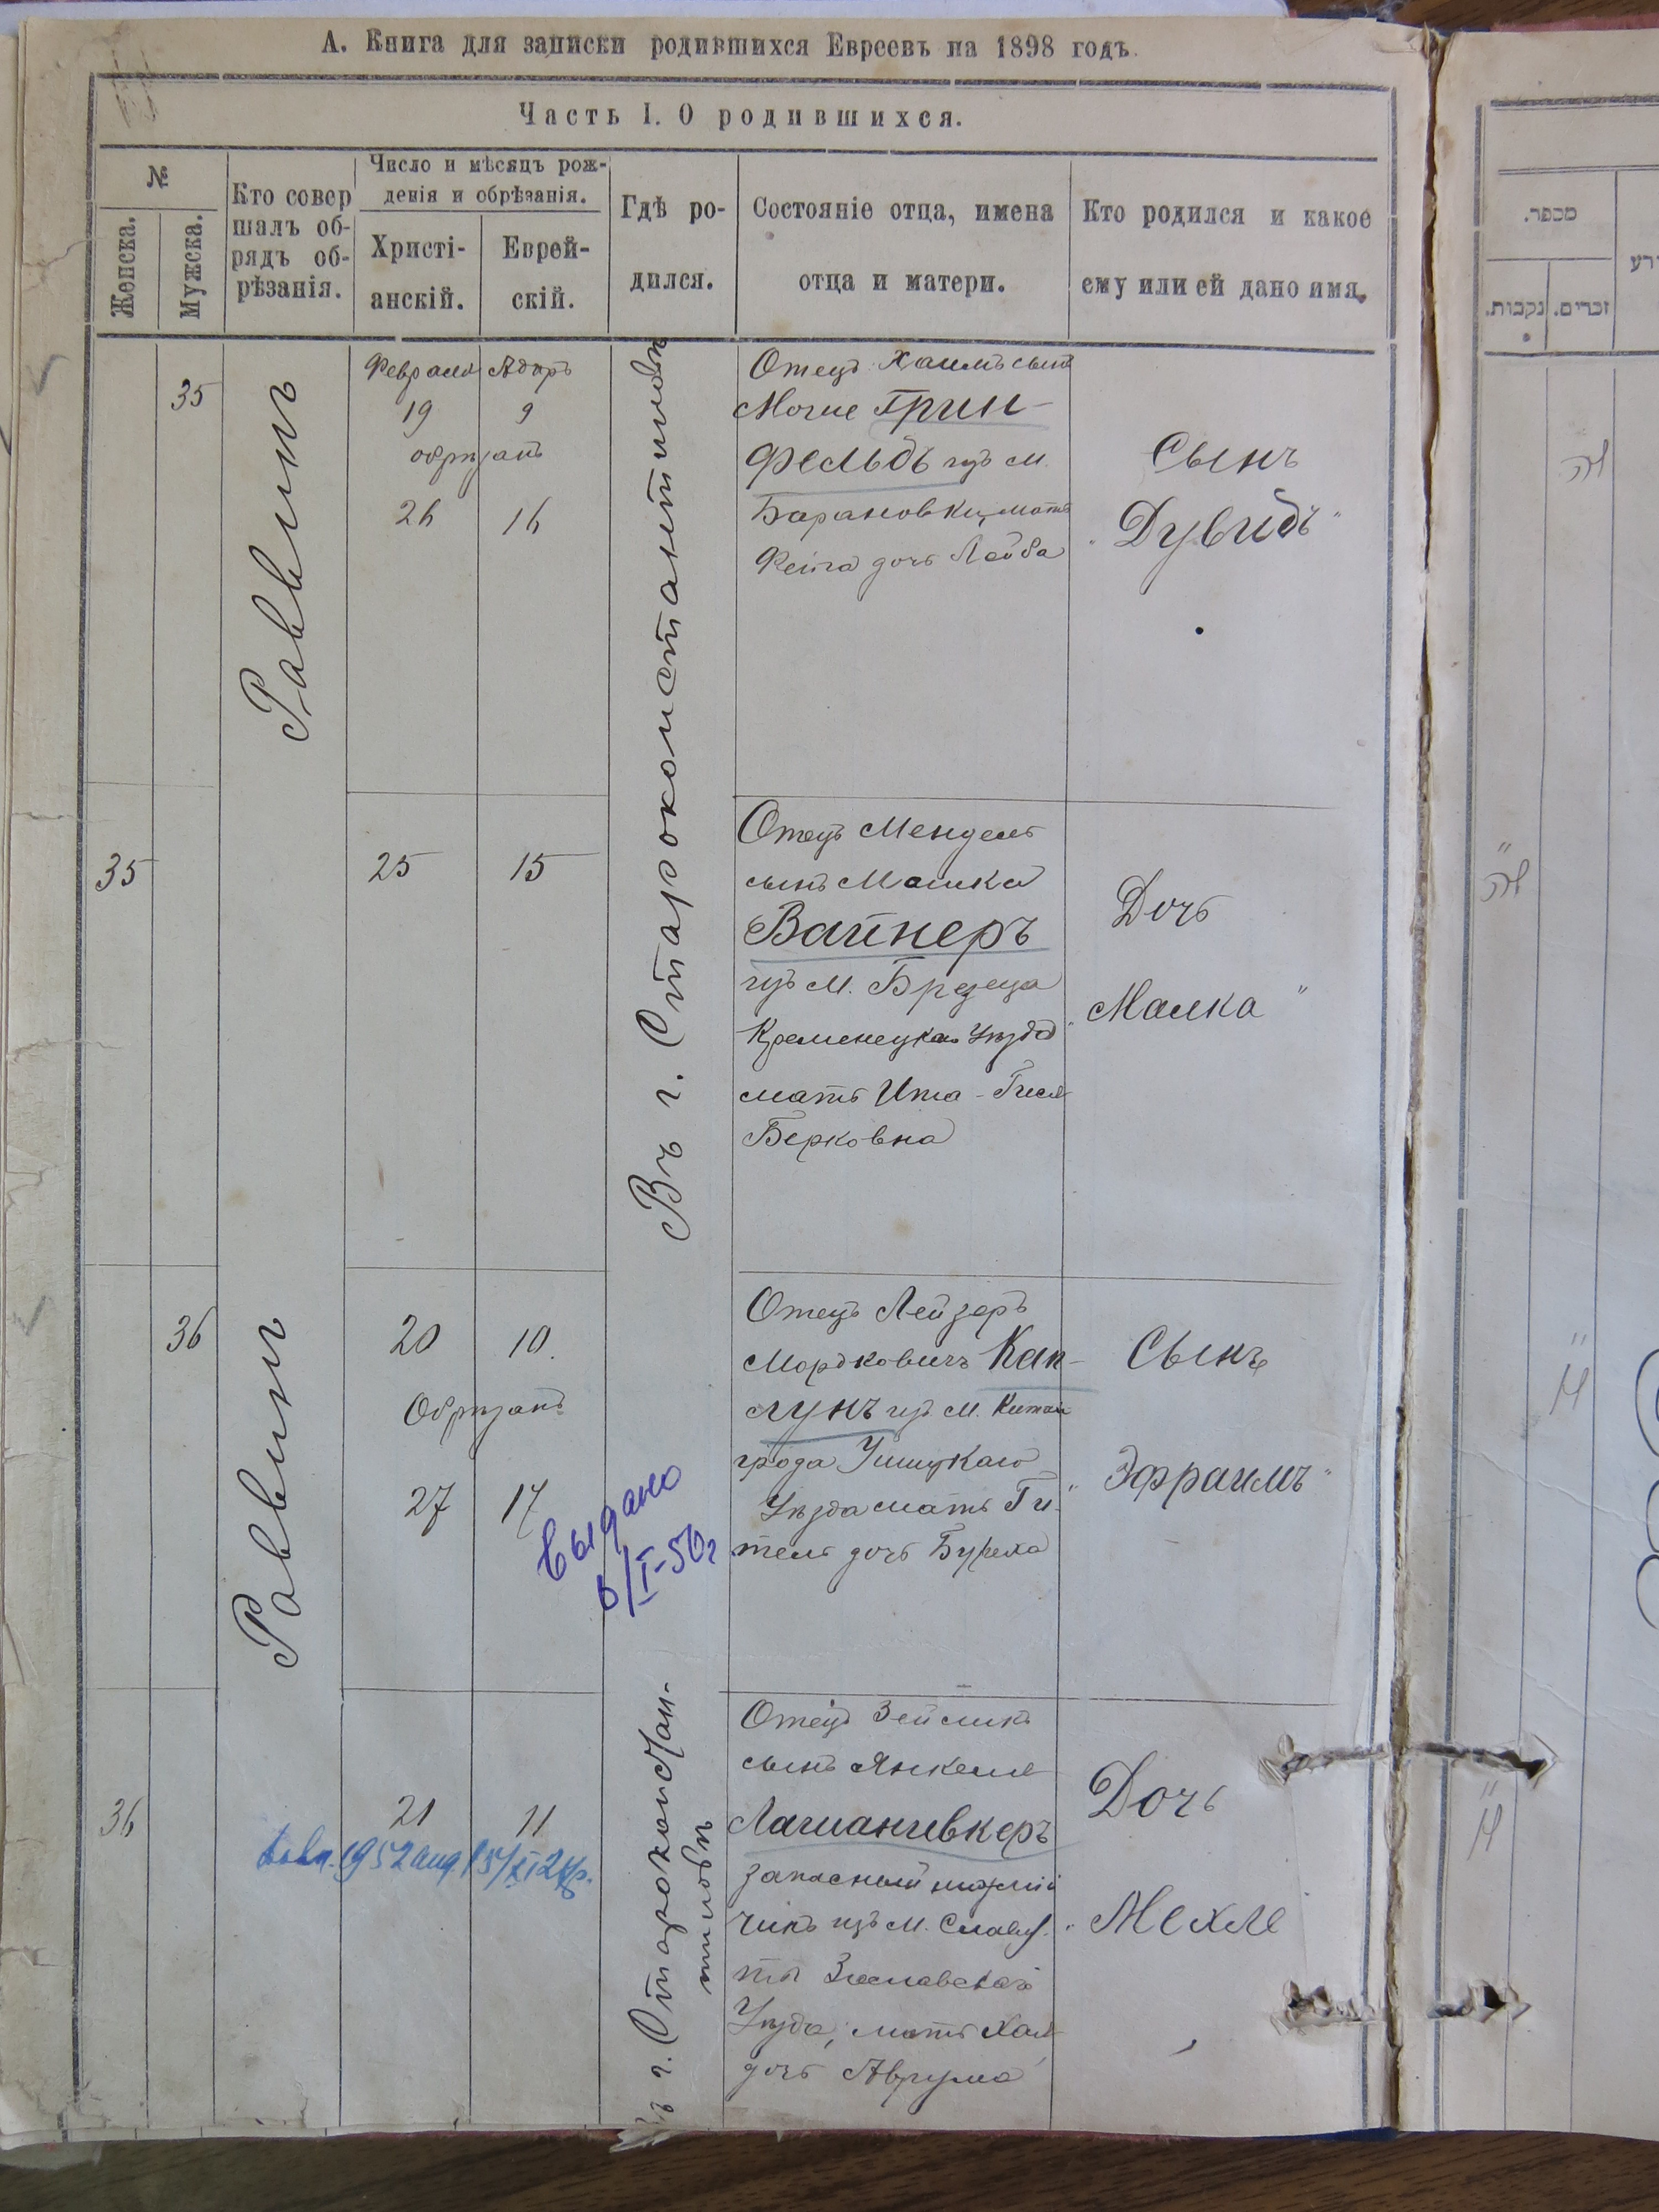 А. Книга для записки родившихся Евреевъ на 1898 годъ.
Часть I. О родившихся.
№
Женска.
Мужска.
Кто совер
шалъ об-
рядъ об-
рѣзанія.
Число и мѣсяцъ рож-
денія и обрѣзанія.
Христі-
анскій.
Еврей-
скій.
Гдѣ ро-
дился.
Состояніе отца, имена
отца и матери.
Кто родился и какое
ему или ей дано имя.
35
Раввинъ
Февраля Адаръ
19 9
обрѣзанъ
26 16
Въ г. Староконстантиновѣ
Отецъ Хаимъ сынъ
Грин-
фельдъ изъ м.
Барановки, мать
Фейга дочь Лейба
Сынъ
"Дувидъ"
35
25 15
Отецъ Мендель
сынъ Мошка
Вайнеръ
изъ м.
Кременецкаго Уѣзда
мать Ита-Гися
Берковна
Дочь
"Малка"
36
Раввинъ
20 10.
Обрѣзанъ
27 17
выдано
6/I-50г
Отецъ Лейзеръ
Мордковичъ Кап-
лунъ изъ м. Китай
города Ушицкаго
Уѣзда мать Ги-
тель дочь Буреха
Сынъ
"Эфраимъ"
36
21 11
1952
г. Староконстан-
тиновѣ
Отецъ Зейликъ
сынъ Янкеля
запасный
чикъ изъ м. Славу-
ты Заславскаго
Уѣзда, мать Хая
дочь Аврума
Дочь
"Мехле
מספר.
נקבות.
זכרים.
לה
לה